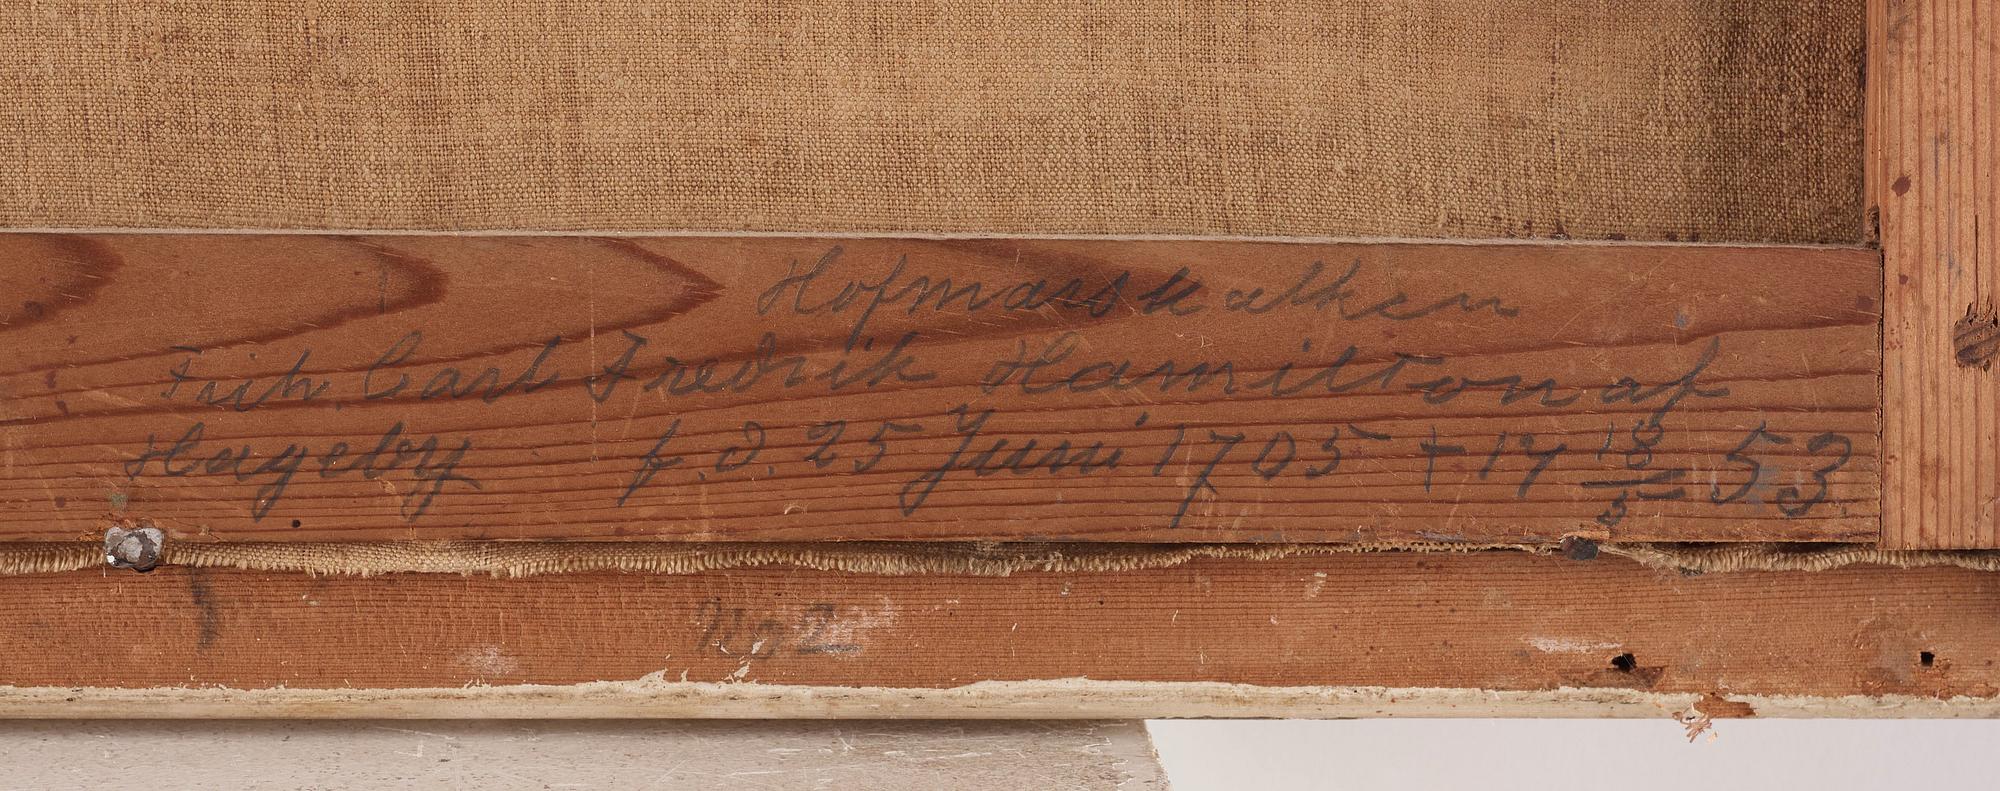 Hofmarskalken
Frih. Carl Fredrik Hamilton af
Hageby f. d. 25 Juni 1705 † 17 18/5 53
No 2